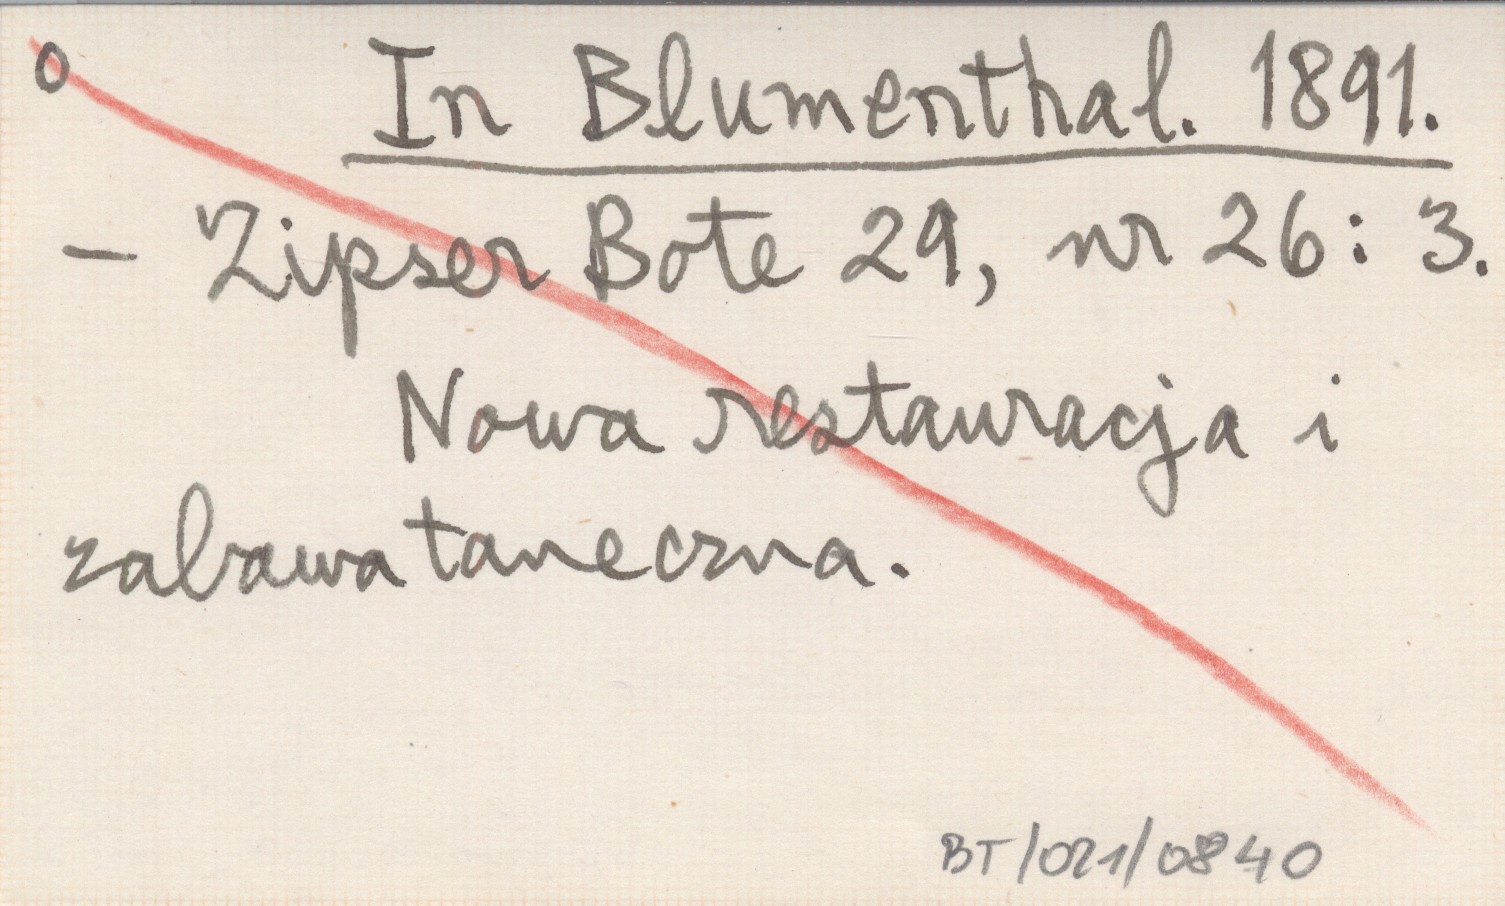 o In Blumenthal. 1891.
- Zipser Bote 29, nr 26: 3.
Nowa restauracja i
zabawa taneczna.
BT/021/0840